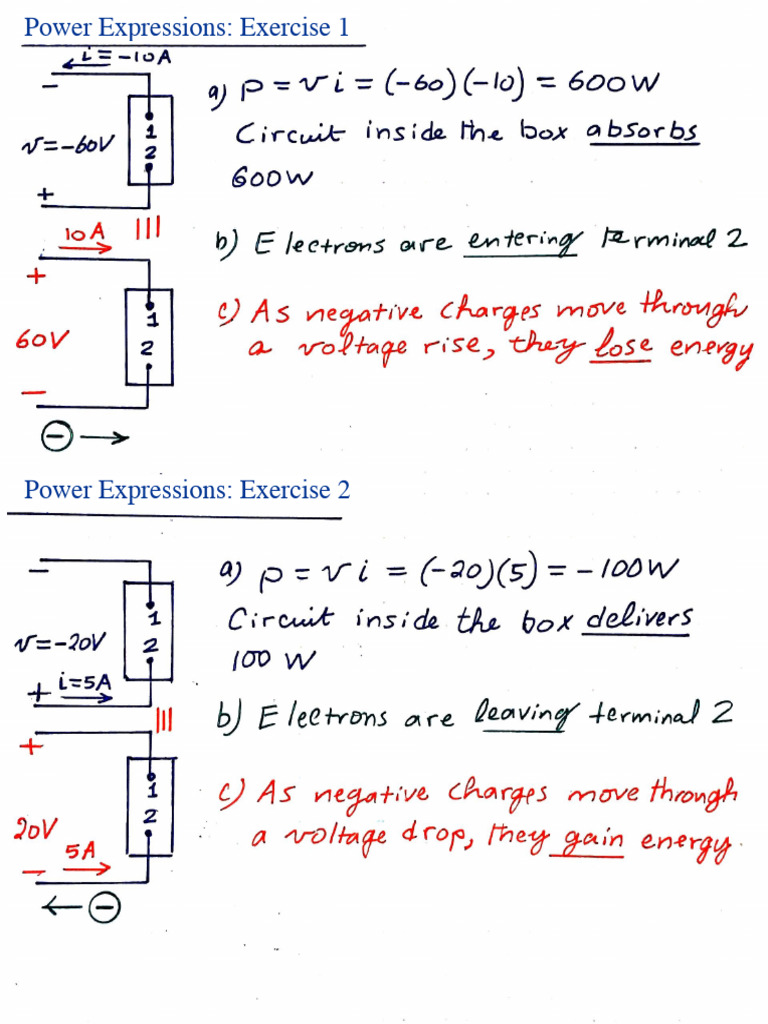 Power Expressions: Exercise 1
i = -10A
−
v = -60V
1
2
+
a) p = v i = (-60)(-10) = 600W
Circuit inside the box absorbs
600W
10A
+
60V
1
2
−
−
b) Electrons are entering terminal 2
c) As negative charges move through
a voltage rise, they lose energy
Power Expressions: Exercise 2
−
v = -20V
1
2
+ i=5A
a) p = v i = (-20)(5) = -100W
Circuit inside the box delivers
100 W
+
20V
1
2
5A
−
−
b) Electrons are leaving terminal 2
c) As negative charges move through
a voltage drop, they gain energy.